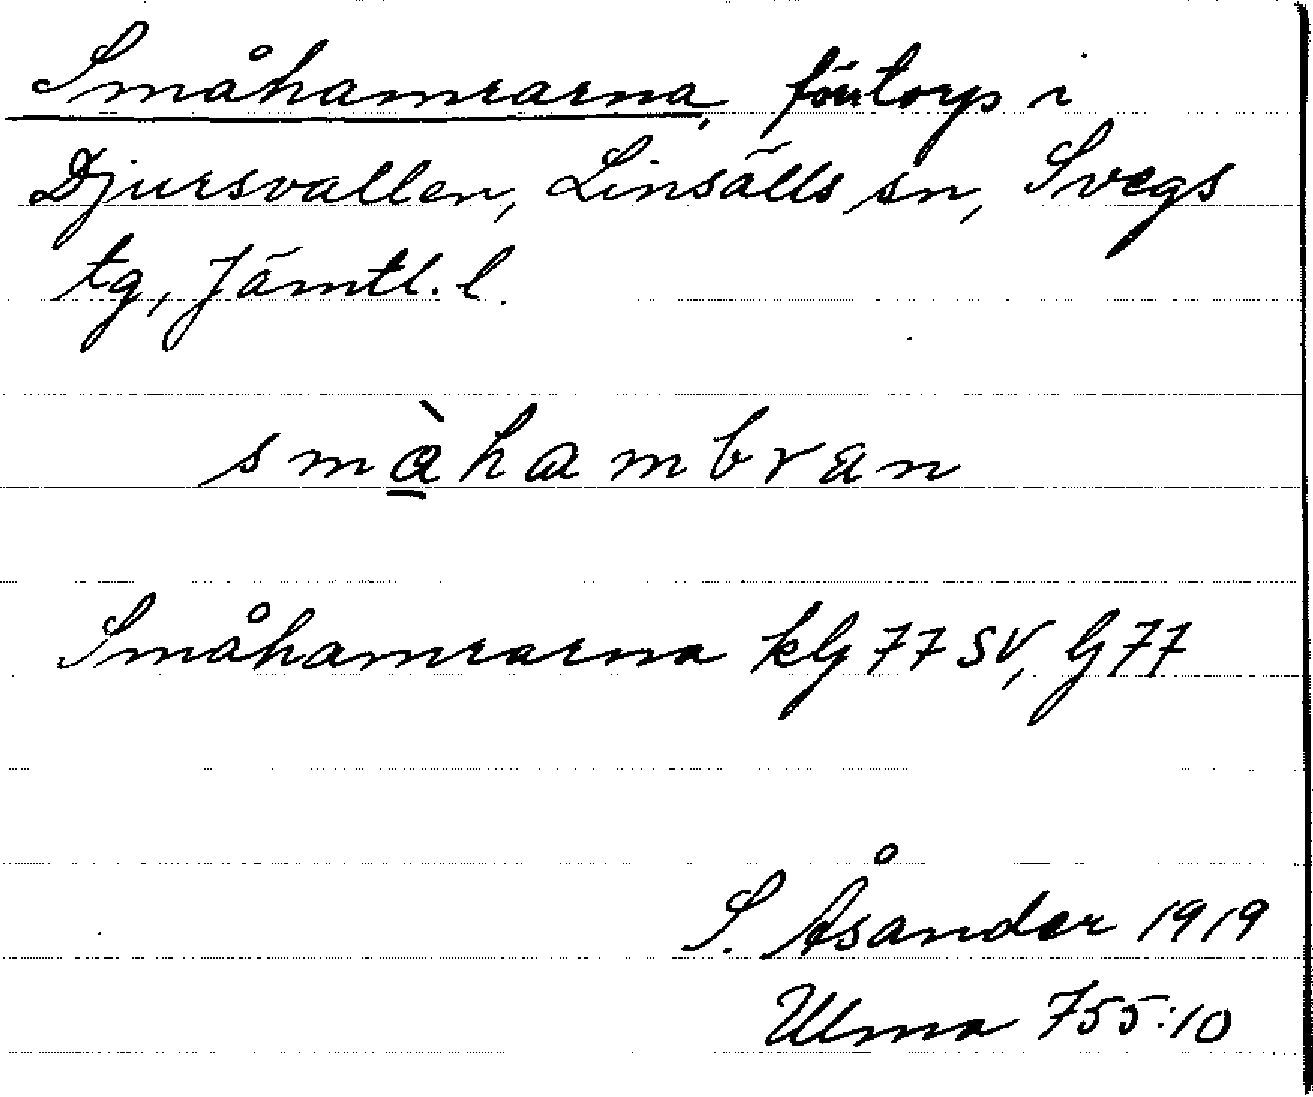 Småhamrarna, förtorp i
Djursvallen, Linsälls sn, Svegs
tg, Jämtl. l.
småhambran
Småhamrarna kG77SV, G77
S. Åsander 1919
Ulma 755:10